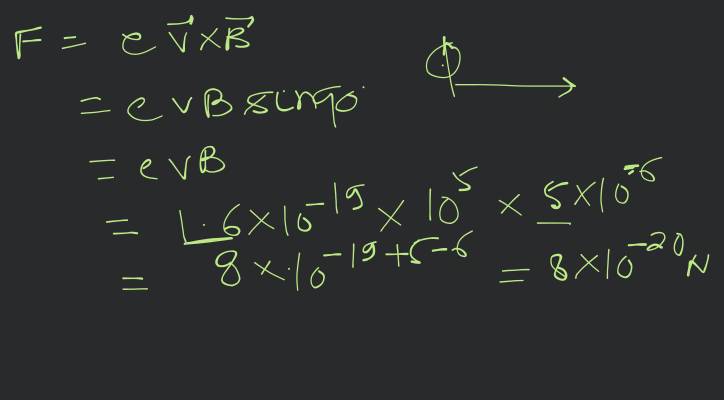 F = e v⃗ × B⃗
= e v B sin 90°
= e v B
= 1.6 × 10⁻¹⁹ × 10⁵ × 5 × 10⁻⁶
= 8 × 10⁻¹⁹⁺⁵⁻⁶ = 8 × 10⁻²⁰ N